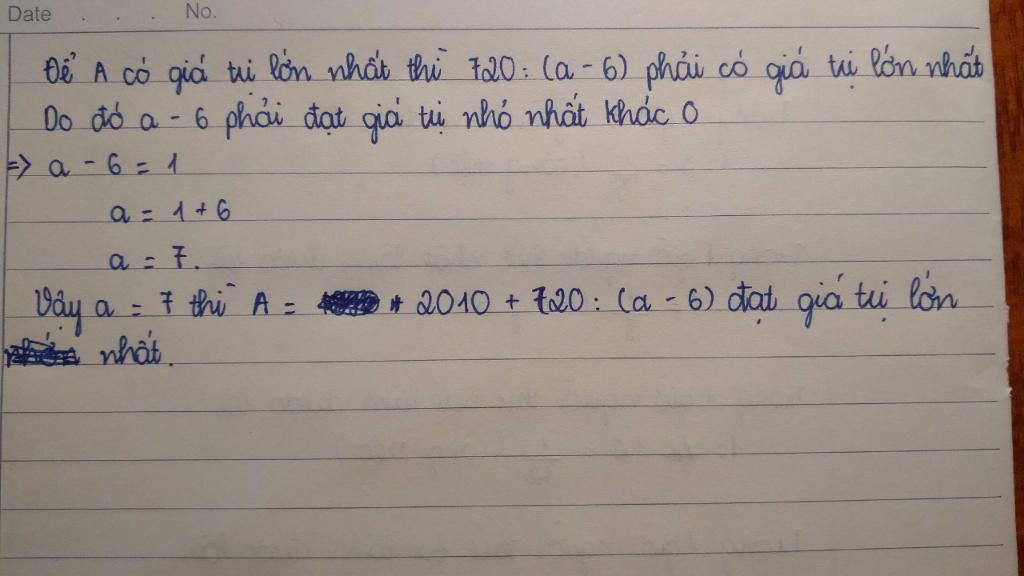 Date . . . No.
Để A có giá trị lớn nhất thì 720 : (a - 6) phải có giá trị lớn nhất
Do đó a - 6 phải đạt giá trị nhỏ nhất khác 0
=> a - 6 = 1
a = 1 + 6
a = 7.
Vậy a = 7 thì A = 2010 + 720 : (a - 6) đạt giá trị lớn
nhất.